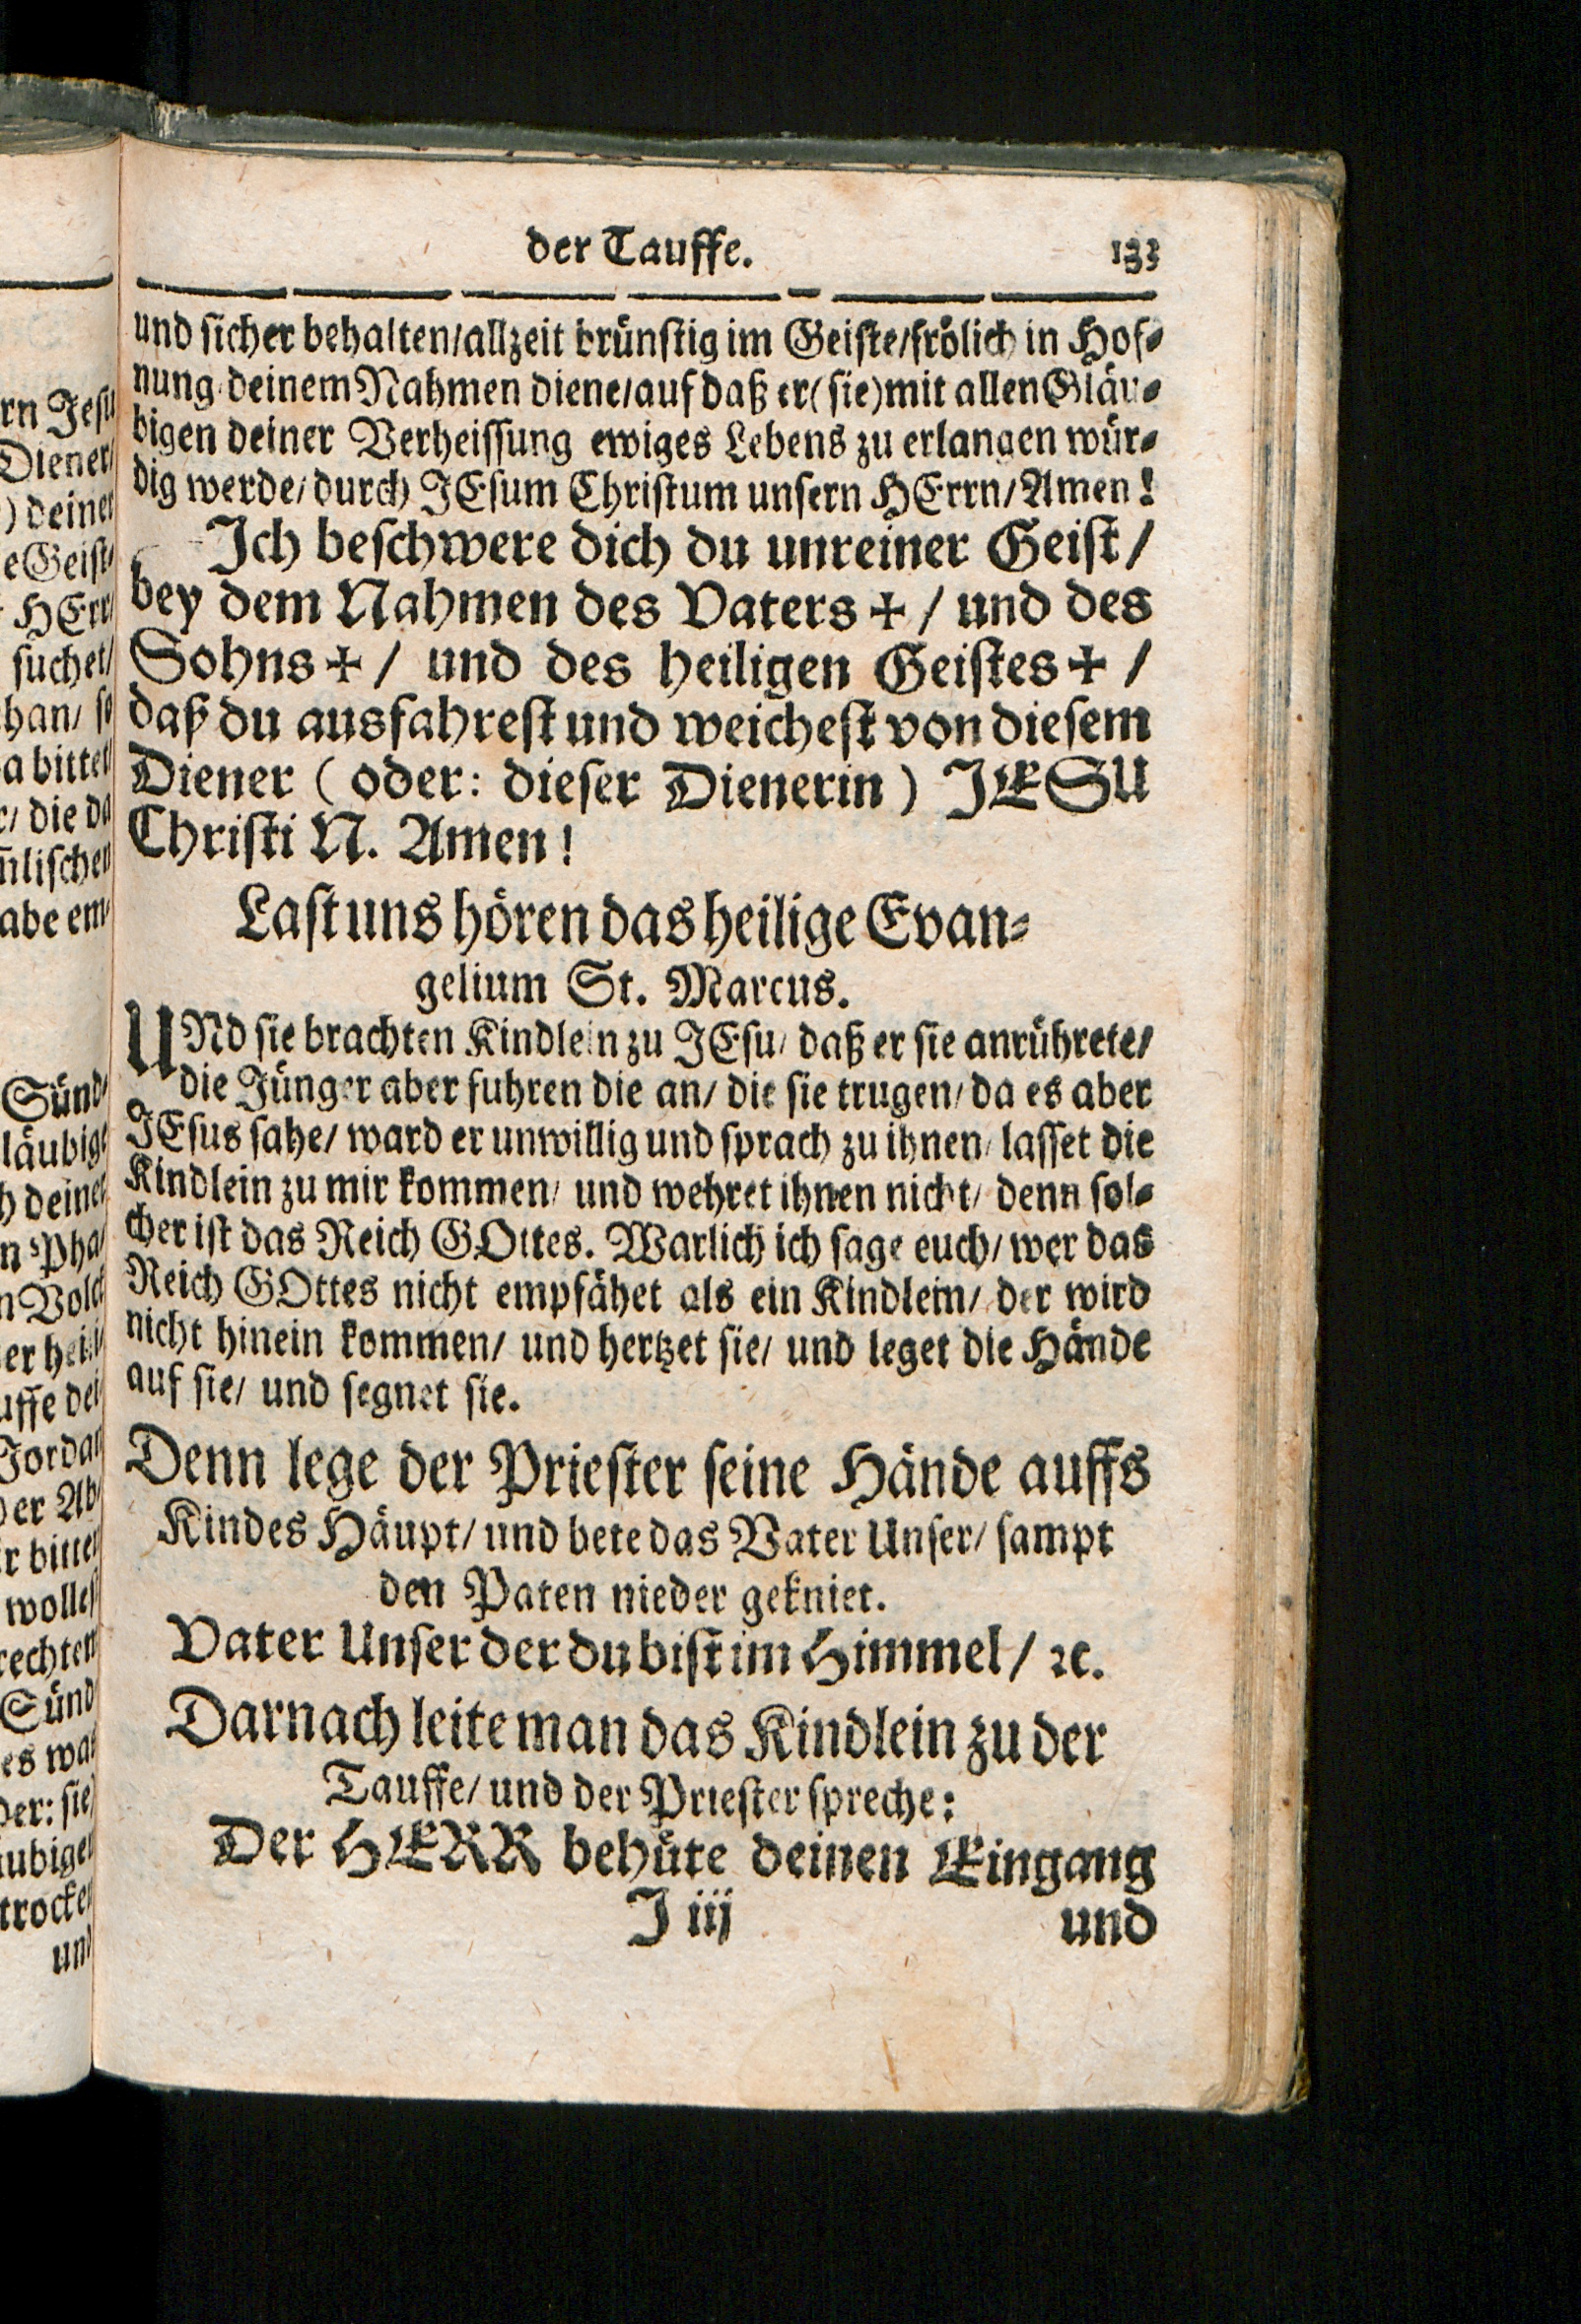 der Tauffe. 133
und sicher behalten/allzeit brünstig im Geiste/frölich in Hof-
nung/deinem Nahmen diene/auf daß er(sie)mit allen Gläu-
bigen deiner Verheissung ewiges Lebens zu erlangen wür-
dig werde/durch JEsum Christum unsern HErrn/Amen!
Ich beschwere dich du unreiner Geist/
bey dem Nahmen des Vaters ✠ / und des
Sohns ✠ / und des heiligen Geistes ✠ /
daß du ausfahrest und weichest von diesem
Diener ( oder: dieser Dienerin ) JESU
Christi N. Amen!
Last uns hören das heilige Evan-
gelium St. Marcus.
UNd sie brachten Kindlein zu JEsu/ daß er sie anrührete/
die Jünger aber fuhren die an/ die sie trugen/ da es aber
JEsus sahe/ ward er unwillig und sprach zu ihnen/ lasset die
Kindlein zu mir kommen/ und wehret ihnen nicht/ denn sol-
cher ist das Reich GOttes. Warlich ich sage euch/ wer das
Reich GOttes nicht empfähet als ein Kindlein/ der wird
nicht hinein kommen/ und hertzet sie/ und leget die Hände
auf sie/ und segnet sie.
Denn lege der Priester seine Hände auffs
Kindes Häupt/ und bete das Vater Unser/ sampt
den Paten nieder gekniet.
Vater Unser der du bist im Himmel/ ꝛc.
Darnach leite man das Kindlein zu der
Tauffe/ und der Priester spreche:
Der HERR behüte deinen Eingang
J iij und